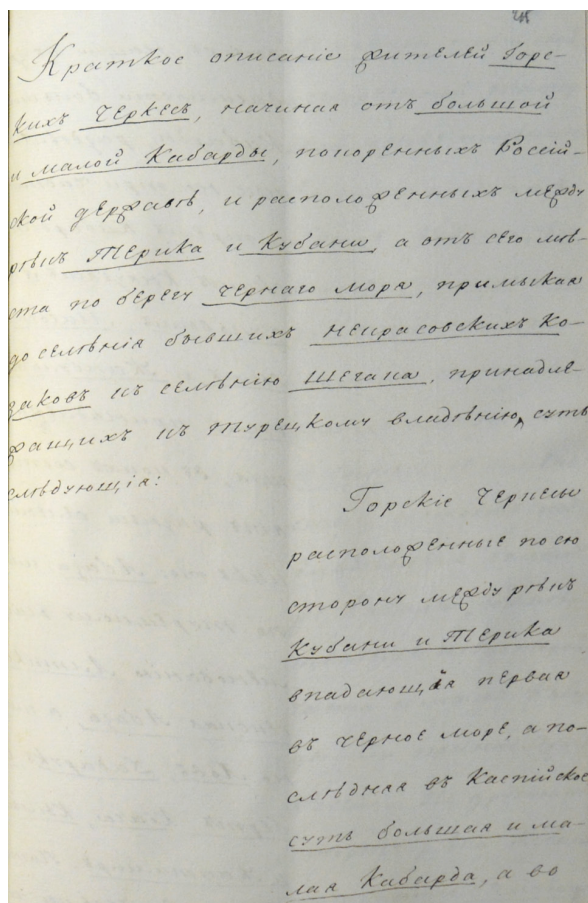 215
Краткое описаніе жителей Горс-
кихъ Черкесъ, начиная отъ большой
и малой Кабарды, покоренныхъ Россій-
ской державѣ, и расположенныхъ между
рѣкъ Терика и Кубани, а отъ сего мѣ-
ста по берегу Чернаго моря, примыкая
до селѣнія бывшихъ некрасовскихъ Ко-
заковъ къ селѣнію Шегана, принадле-
жащихъ къ Турецкому владѣнію, суть
слѣдующія:
Горскіе Черкесы
расположенные по сю
сторону между рѣкъ
Кубани и Терика
впадающія первая
въ Черное море, а по-
слѣдняя въ Каспійское
суть большая и ма-
лая Кабарда, а во